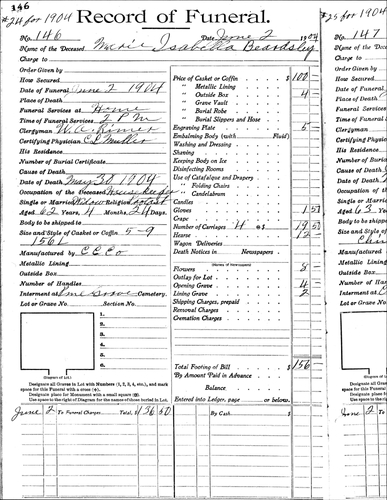 146
#24 for 1904
Record of Funeral.
No. 146 Date June 2 1904
Name of the Deceased Isabella Beardsley
Charge to
Order Given by
How Secured
Date of Funeral June 2 1904
Place of Death
Funeral Services at Home
Time of Funeral Services 2 P M
Clergyman W. A.
Certifying Physician
His Residence
Number of Burial Certificate
Cause of Death
Date of Death May 30 1904
Occupation of the Deceased Housekeeper
Single or Married Widow Religion
Aged 62 Years, 4 Months, 24 Days
Body to be shipped to
Size and Style of Casket or Coffin 5-9
1561
Manufactured by C C Co
Metallic Lining
Outside Box
Number of Handles
Interment at Pine Grove Cemetery.
Lot or Grave No. Section No.
1.
2.
3.
4.
5.
6.
(Diagram of Lot.)
Designate all Graves in Lot with Numbers (1, 2, 3, 4, etc.), and mark
space for this Funeral with a cross (+).
Designate place for Monument with a small square
Use space to the right of Diagram for the names of those buried in Lot.
June 2 To Funeral Charges Total, $ 136 50
Price of Casket or Coffin $ 100
" Metallic Lining
" Outside Box 4
" Grave Vault
" Burial Robe
" Burial Slippers and Hose
Engraving Plate 5
Embalming Body (with Fluid)
Washing and Dressing
Shaving
Keeping Body on Ice
Disinfecting Rooms
Use of Catafalque and Drapery
" Folding Chairs
" Candelabrum
Candles
Gloves 1 5
Crape
Number of Carriages 4 @ $ 19 5
Hearse 12
Wagon Deliveries
Death Notices in Newspapers
Flowers 8
Outlay for Lot
Opening Grave 4
Lining Grave 2
Shipping Charges, prepaid
Removal Charges
Cremation Charges
Total Footing of Bill $ 156
By Amount Paid in Advance
Balance
Entered into Ledger, page or below.
By Cash $
#25 for 1904
No. 147
Name of the Deceased
Charge to
Order Given by
How Secured
Date of Funeral
Place of Death
Funeral Services
Time of Funeral
Clergyman
Certifying Physician
His Residence
Number of Burial
Cause of Death
Date of Death
Occupation of the
Single or Married
Aged 63 Years,
Body to be shipped
Size and Style of
Manufactured by
Metallic Lining
Outside Box
Number of Handles
Interment at
Lot or Grave No.
(Diagram of Lot.)
Designate all
space for this Fun
Designate place
Use space to the
June 2 To